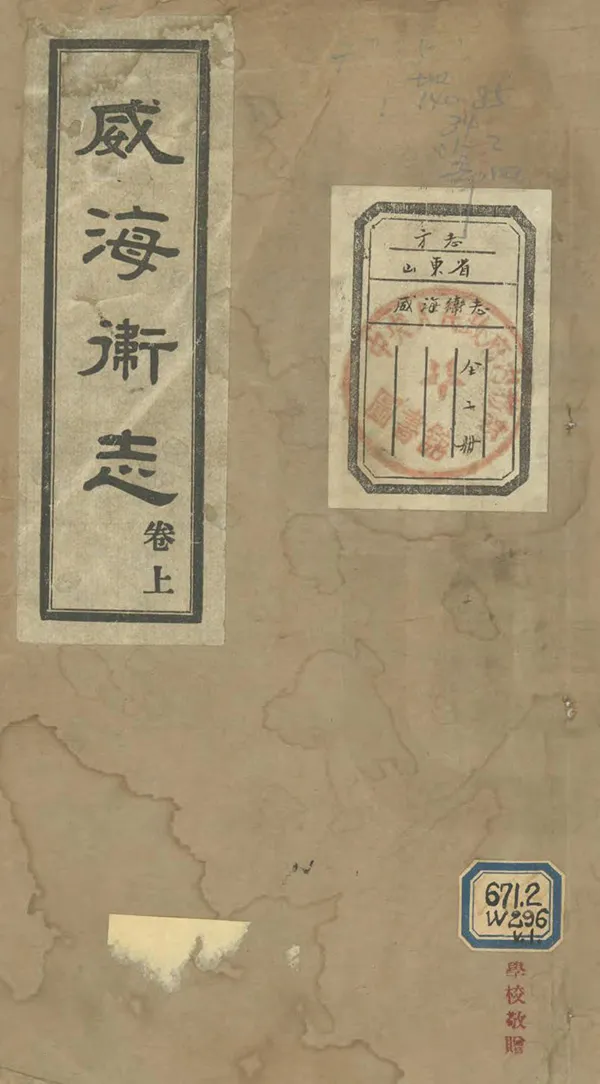 威海衛志
卷上
方志
山東省
威海衛志
全二册
圖書館
671.2
W296
v.1.
學校敬贈